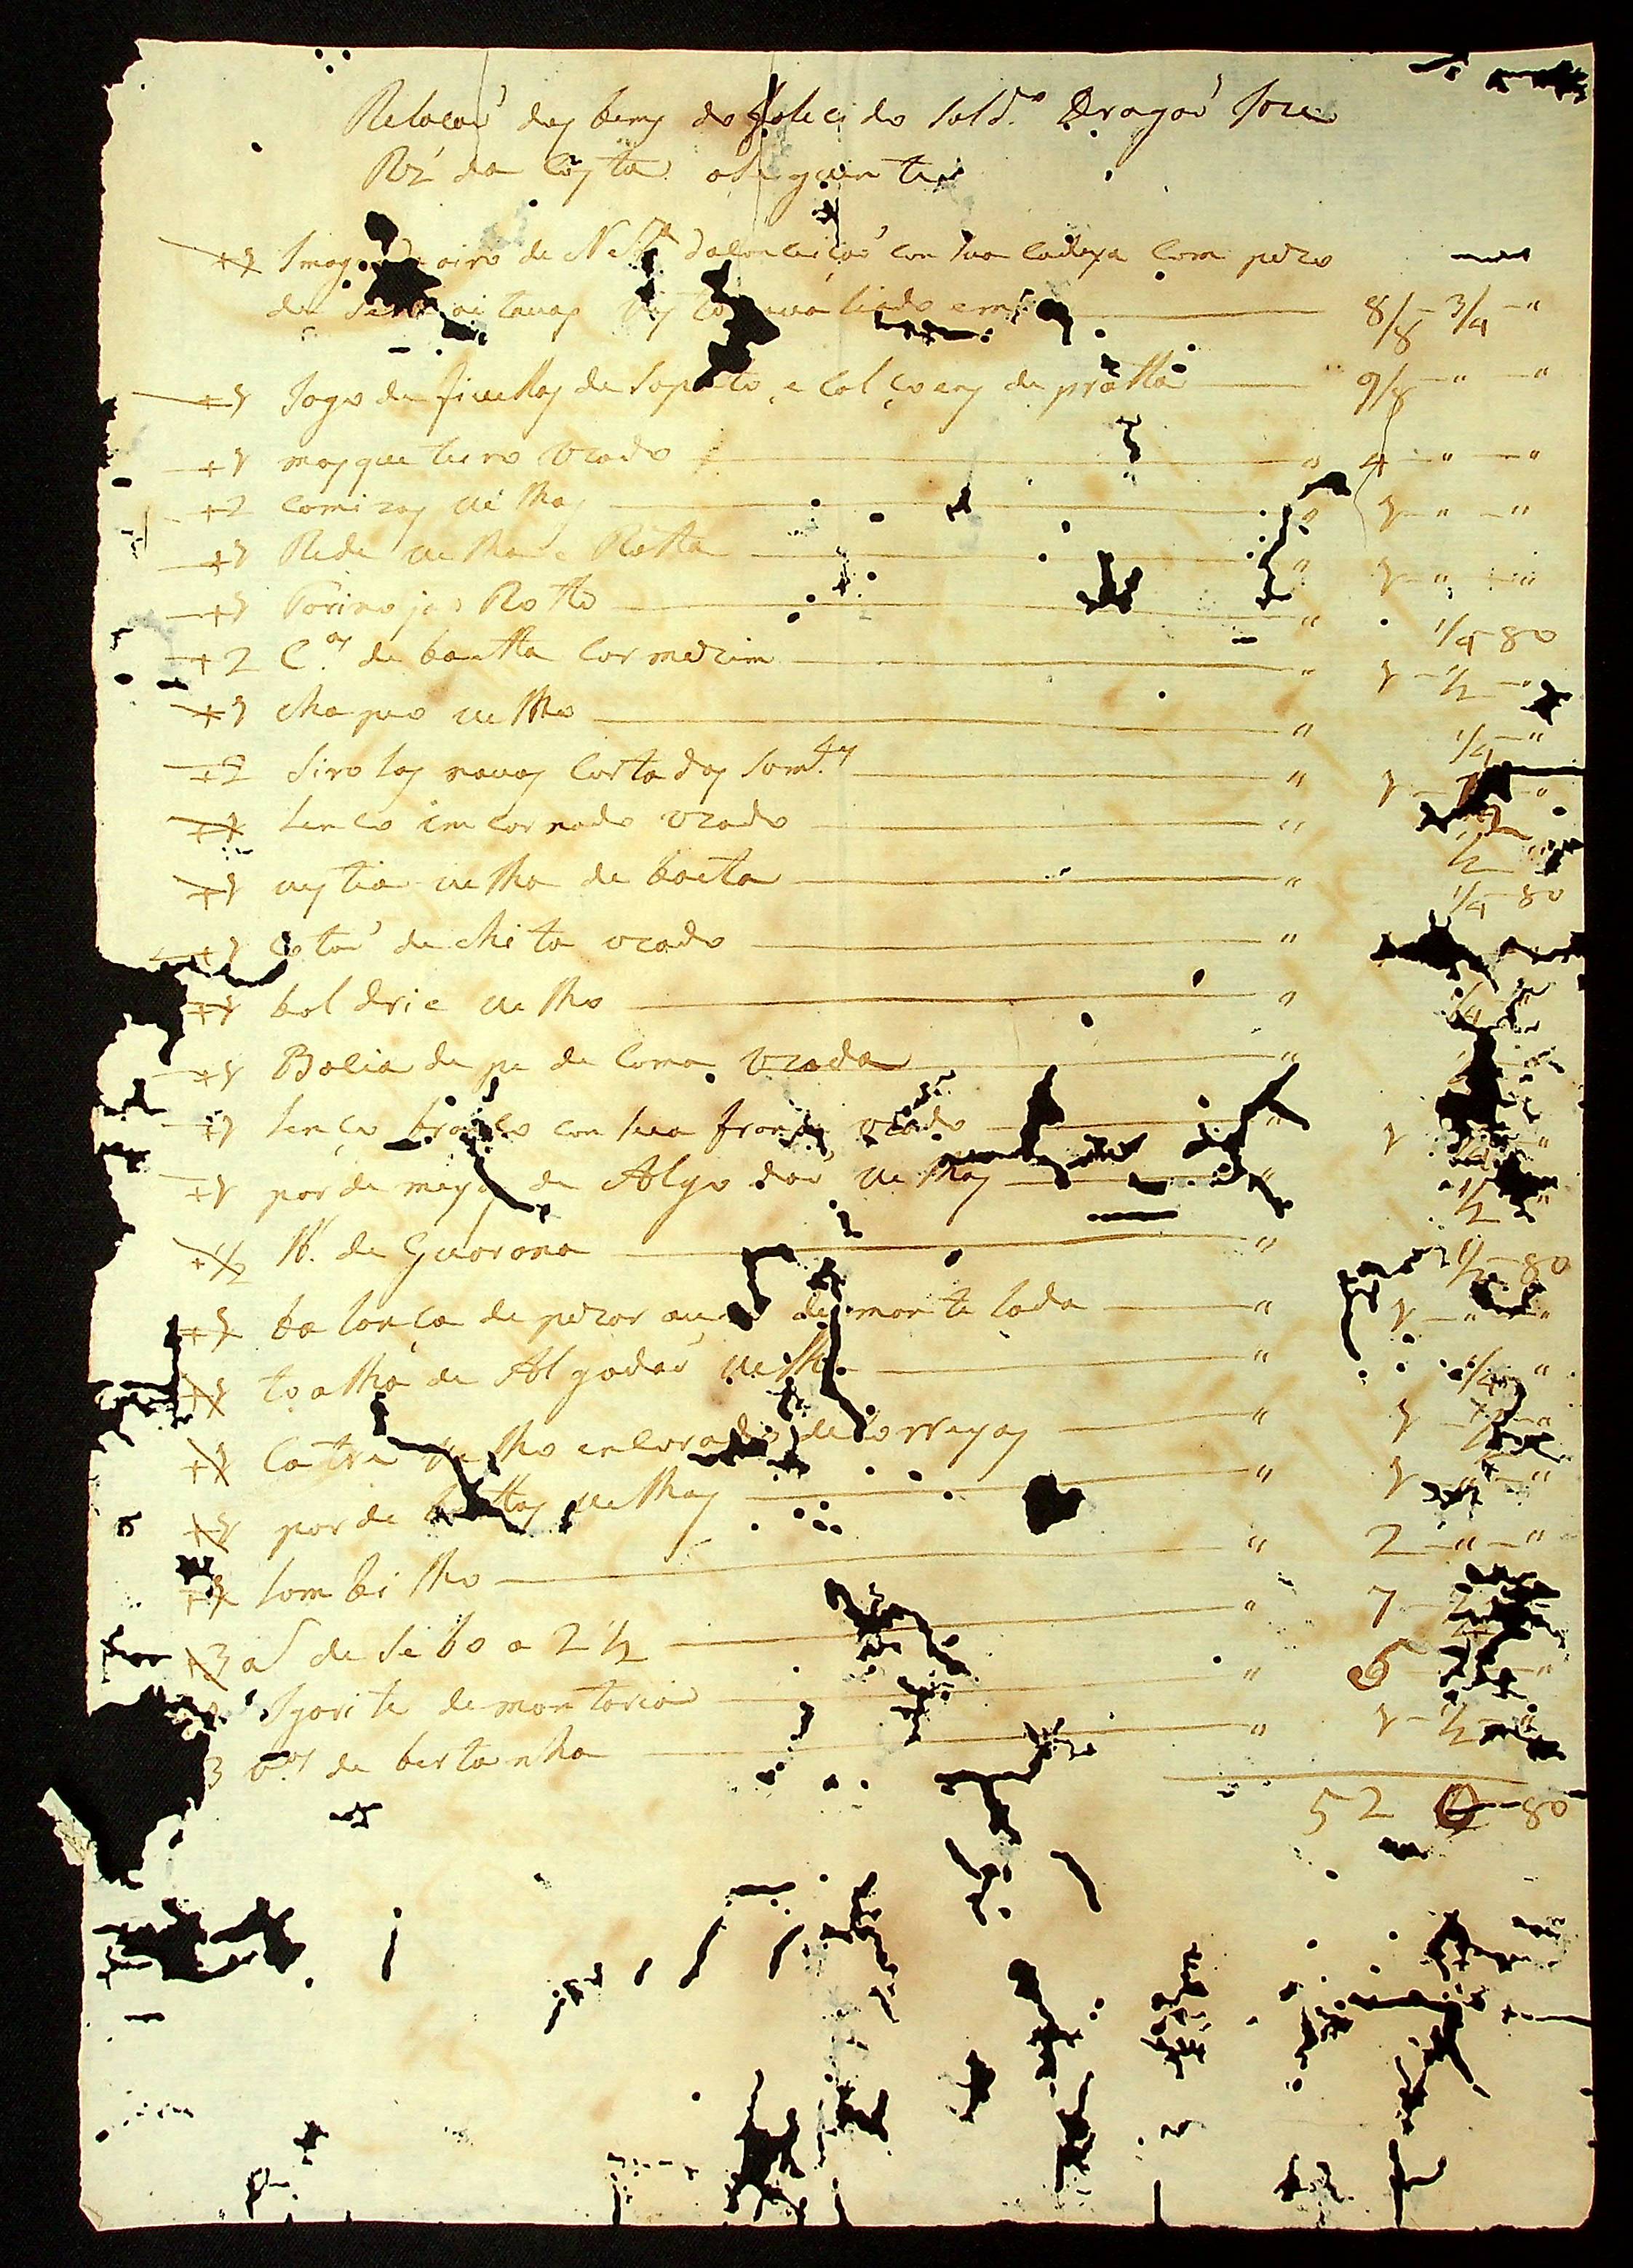 Relacaõ dos bens do falecido Sold.º Dragaõ Joze
Roiz da Costa o Seguinte
+ 1 Imag de N Sr.ª da Conceiçaõ con sua cadeya com pezo
de oitavas em 8/8 3/4 "
+ 1 Jogo de fivellas de Sapato, e calçoens de pratta 9/8 " "
+ 1 mosqueteiro vzado " 4 " "
+ 2 Camizas velhas " 1 " "
+ 1 Rede velha e Rotta " 1 " "
+ 1 ja Rotto " 1/4 80
+ 2 C.as de baetta Cor mezim " 1 1/2 "
+ 1 chapeo velho " 1/4 "
+ 2 Sirolas novas Cortadas Som.te " 1 "
+ 1 Lenco emcarnado vzado " 1/2
+ 1 vestia velha de baeta " 1/4 80
+ 1 de chita vzado "
+ 1 boldrie velho " 1/4
+ 1 Bacia de pe de Cama vzada "
+ 1 Lenço branco con sua vzado " 1
+ 1 par de meyas de Algodaõ velhas " 1/2 "
+ 1/2 lb. de Guarana " 1/2 80
+ 1 balança de pezar desmontelada " 1 " "
+ 1 toalha de Algodaõ velha " 1/4 "
+ 1 Catre velho encorado de Correyas " 1
+ 1 par de bottas velhas " 1 " "
+ 1 Lombilho " 2 " "
+ 3 de Sebo a 2 1/2 " 7
Igarite de montaria " 5 "
3 v.as de bertanha " 1 1/2 "
52 0 80